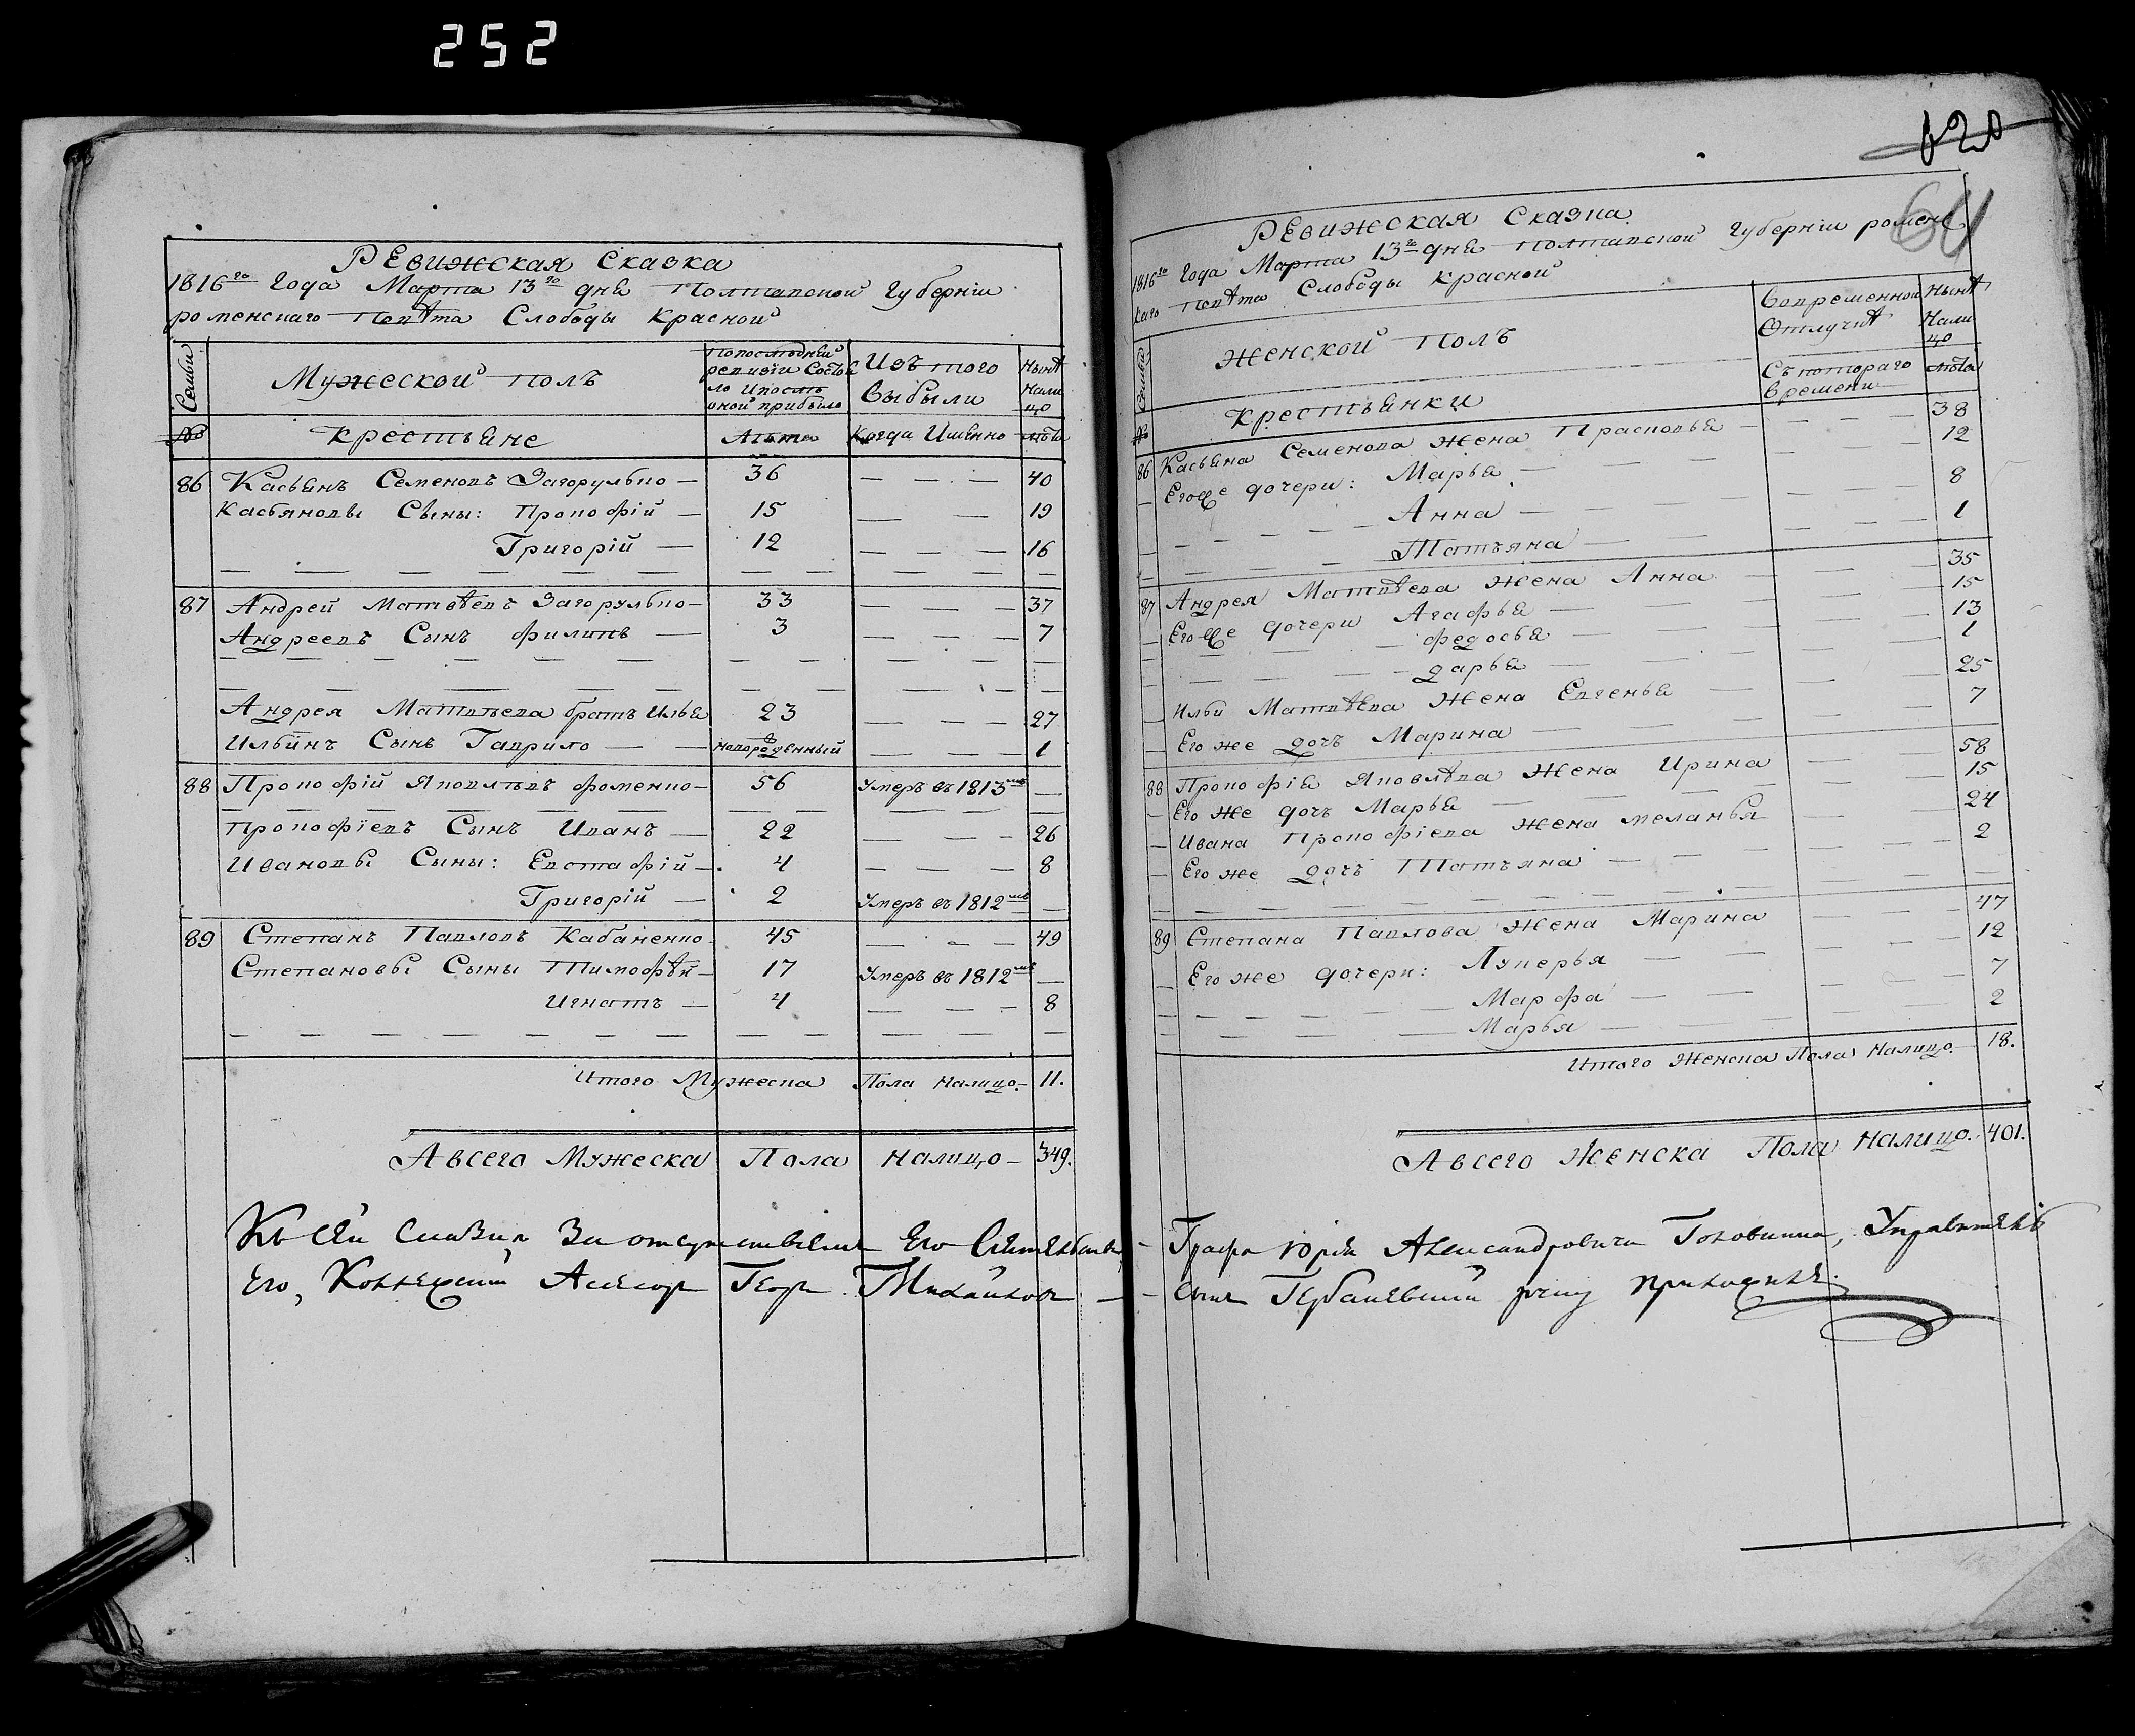 252
Ревижская Сказка
1816го Года Марта 13го дня Полтавской Губернiи
роменскаго Повѣта Слободы Красной
Семьи
Мужеской полъ
Попослѣдней ревизiи Состояло Ипослѣ оной прибыло
Изъ того Выбыли
Нынѣ Налицо
№
крестьяне
Лѣта
Когда Именно
лѣта
86 Касьянъ Семеновъ Загорулько — 36 — — — 40
Касьяновы Сыны: Прокофiй — 15 — — 19
Григорiй — 12 — — — 16
87 Андрей Матвѣевъ Загорулько — 33 — — — 37
Андреевъ Сынъ филипъ — 3 — — — 7
Андрея Матвѣева братъ Илья 23 — — — 27
Ильинъ Сынъ Гаврило — — новорожденный — — — 1
88 Прокофiй Яковлѣвъ фоменко — 56 Умеръ въ 1813мъ —
Прокофiевъ Сынъ Иванъ — 22 — — — 26
Ивановы Сыны: Евстафiй — 4 — — — 8
Григорiй — 2 Умеръ въ 1812мъ —
89 Степанъ Павловъ Кабаненко 45 — — — 49
Степановы Сыны Тимофѣй — 17 Умеръ въ 1812мъ —
Игнатъ — 4 — — — 8
Итого Мужеска Пола налицо — 11.
Авсего Мужеска Пола налицо — 349.
Къ сей Сказки За отсутствiемъ Его Сiятельства,
Его, Коллежскiй Асесор Геор. Михайлов —
120
61
Ревижская Сказка
1816го Года Марта 13го дня Полтавской Губернiи роменс
каго Повѣта Слободы Красной
Семьи
Женской полъ
Вовременной Отлучкѣ
Нынѣ Налицо
№
крестьянки
Съ котораго времени
лѣта
86 Касьяна Семенова жена Прасковья — — — 38
Егоже дочери: Марья — — — 12
Анна — — — 8
Татьяна — — — 1
87 Андрея Матвѣева жена Анна — — — 35
Егоже дочери Агафья — — — 15
федосья — — — 13
дарья — — — 1
Ильи Матвѣева жена Евгенья — — — 25
Его же дочъ Марина — — — 7
88 Прокофiя Яковлѣва жена Ирина — — 58
Его же дочъ Марья — — — 15
Ивана Прокофiева жена меланья — — 24
Его же дочъ Татьяна — — — 2
89 Степана Павлова жена Марина — — — 47
Его же дочери: Лукерья — — — 12
Марфа — — — 7
Марья — — — 2
Итого Женска Пола налицо. 18.
Авсего Женска Пола налицо. 401.
Графа Юрия Александровича Головкина, Управитель
руку приложилъ.